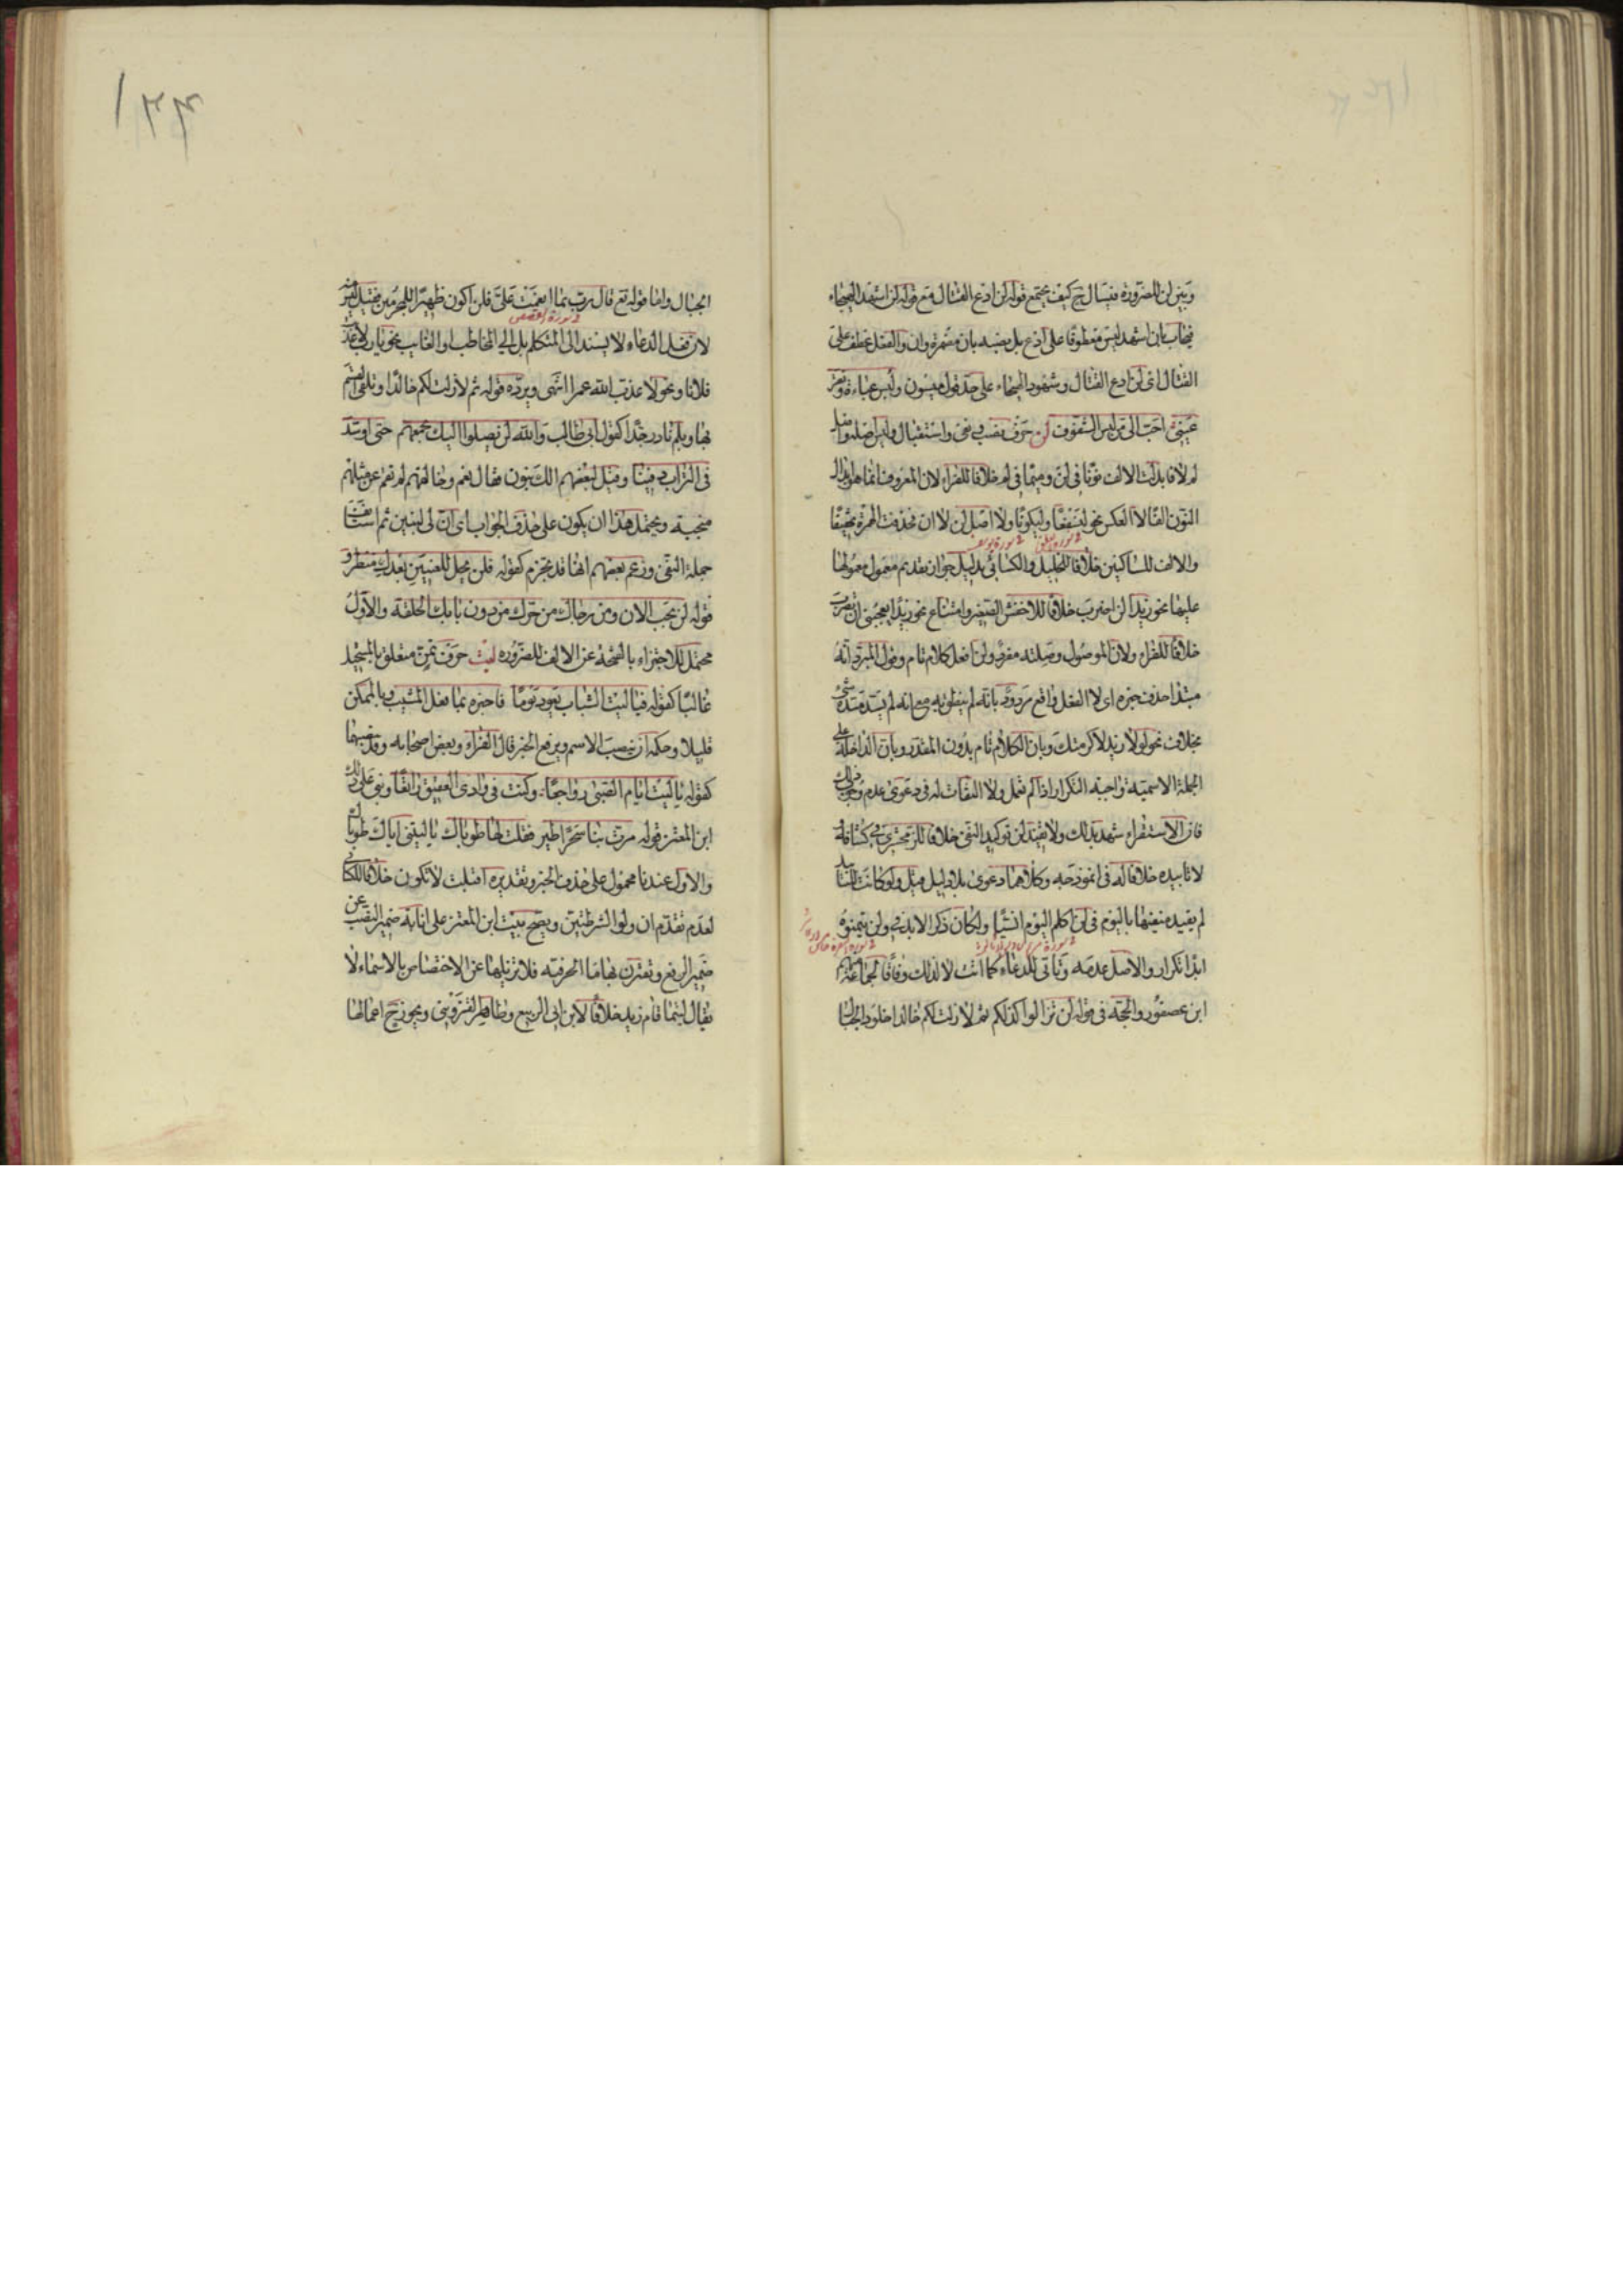 وبين لن للضرورة فيسال ح كيف يجتمع قوله لن ادع القتال مع قوله لن اشهد الهيجاء
فيجاب بان اشهد ليس معطوفا على ادع بل نصبه بان مضمرة وان والفعل عطف على
القتال اى لن ادع القتال وشهود الهيجاء على حد قول ميسون ولبس عباءة وتقر
عينى احب الى من لبس الشفوف لن حرف نصب ونفى واستقبال وليس اصله واصل
لم لا فابدلت الالف نونا فى لن وميما فى لم خلافا للفراء لان المعروف انما هو ابدال
النون الفا لا العكس نحو لنسفعا وليكونا ولا اصل لن لا ان فحذفت الهمزة تخفيفا
والالف للساكنين خلافا للخليل والكسائى بدليل جواز تقديم معمول معمولها
عليها نحو زيدا لن اضرب خلافا للاخفش الصغير وامتناع نحو زيدا يعجبنى ان تضرب
خلافا للفراء ولان الموصول وصلته مفرد ولن افعل كلام تام وقول المبرد انه
مبتدا حذف خبره اى لا الفعل واقع مردود بانه لم ينطق به مع انه لم يسد مسده شئ
بخلاف نحو لولا زيد لاكرمتك وبان الكلام تام بدون المقدر وبان لا الداخلة على
الجملة الاسمية واجبة التكرار اذا لم تعمل ولا التفات له فى دعوى عدم وجوب ذلك
فان الاستقراء شهد بذلك ولا يفيد لن توكيد النفى خلافا للزمخشرى فى كشافه و
لا تابيده خلافا له فى انموذجه وكلاهما دعوى بلا دليل قيل ولو كانت للتابيد
لم يقيد منفيها باليوم فى لن اكلم اليوم انسيا ولكان ذكر الابد فى ولن يتمنوه
ابدا تكرارا والاصل عدمه وتاتى للدعاء كما اتت لا لذلك وفاقا لجماعة منهم
ابن عصفور والحجة فى قوله لن تزالوا كذلكم ثم لا زلت لكم خالدا خلود الجبال
١٣٤
الجبال واما قوله تع قال رب بما انعمت على فلن اكون ظهيرا للمجرمين فقيل ليس منه
فى سورة القصص
لان فعل الدعاء لا يسند الى المتكلم بل الى المخاطب او الغايب نحو يا رب لا عذبت
فلانا ونحو لا عذب الله عمرا انتهى ويرده قوله ثم لا زلت لكم خالدا وتلقى القسم
بها وبلم نادر جدا كقول ابى طالب والله لن يصلوا اليك بجمعهم حتى اوسد
فى التراب دفينا وقيل لبعضهم الك بنون فقال نعم وخالقهم لم تقم عن مثلهم
منجبة ويحتمل هذا ان يكون على حذف الجواب اى ان لى لبنين ثم استانف
جملة النفى وزعم بعضهم انها قد تجزم كقوله فلن يحل للعينين بعدك منظر و
قوله لن يخب الان من رجائك من حرك من دون بابك الحلقة والاول
محتمل للاجتزاء بالفتحة عن الالف للضرورة ليت حرف تمن متعلق بالمستحيل
غالبا كقوله فيا ليت الشباب يعود يوما فاخبره بما فعل المشيب وبالممكن
قليلا وحكمه ان ينصب الاسم ويرفع الخبر قال الفراء وبعض اصحابه وقد ينصبهما
كقوله يا ليت ايام الصبى رواجعا وكنت فى وادى العقيق راتعا وبنى على ذلك
ابن المعتز قوله مرت بنا سحرا طير فقلت لها طوباك يا ليتنى اياك طوباك
والاول عندنا محمول على حذف الخبر وتقديره اقبلت لا تكون خلافا للكسائى
لعدم تقدم ان ولو الشرطيتين ويصح بيت ابن المعتز على انابة ضمير النصب عن
ضمير الرفع وتقترن بها ما الحرفية فلا تزيلها عن الاختصاص بالاسماء لا
يقال ليتما قام زيد خلافا لابن ابى الربيع وطاهر القزوينى ويجوز ح اعمالها